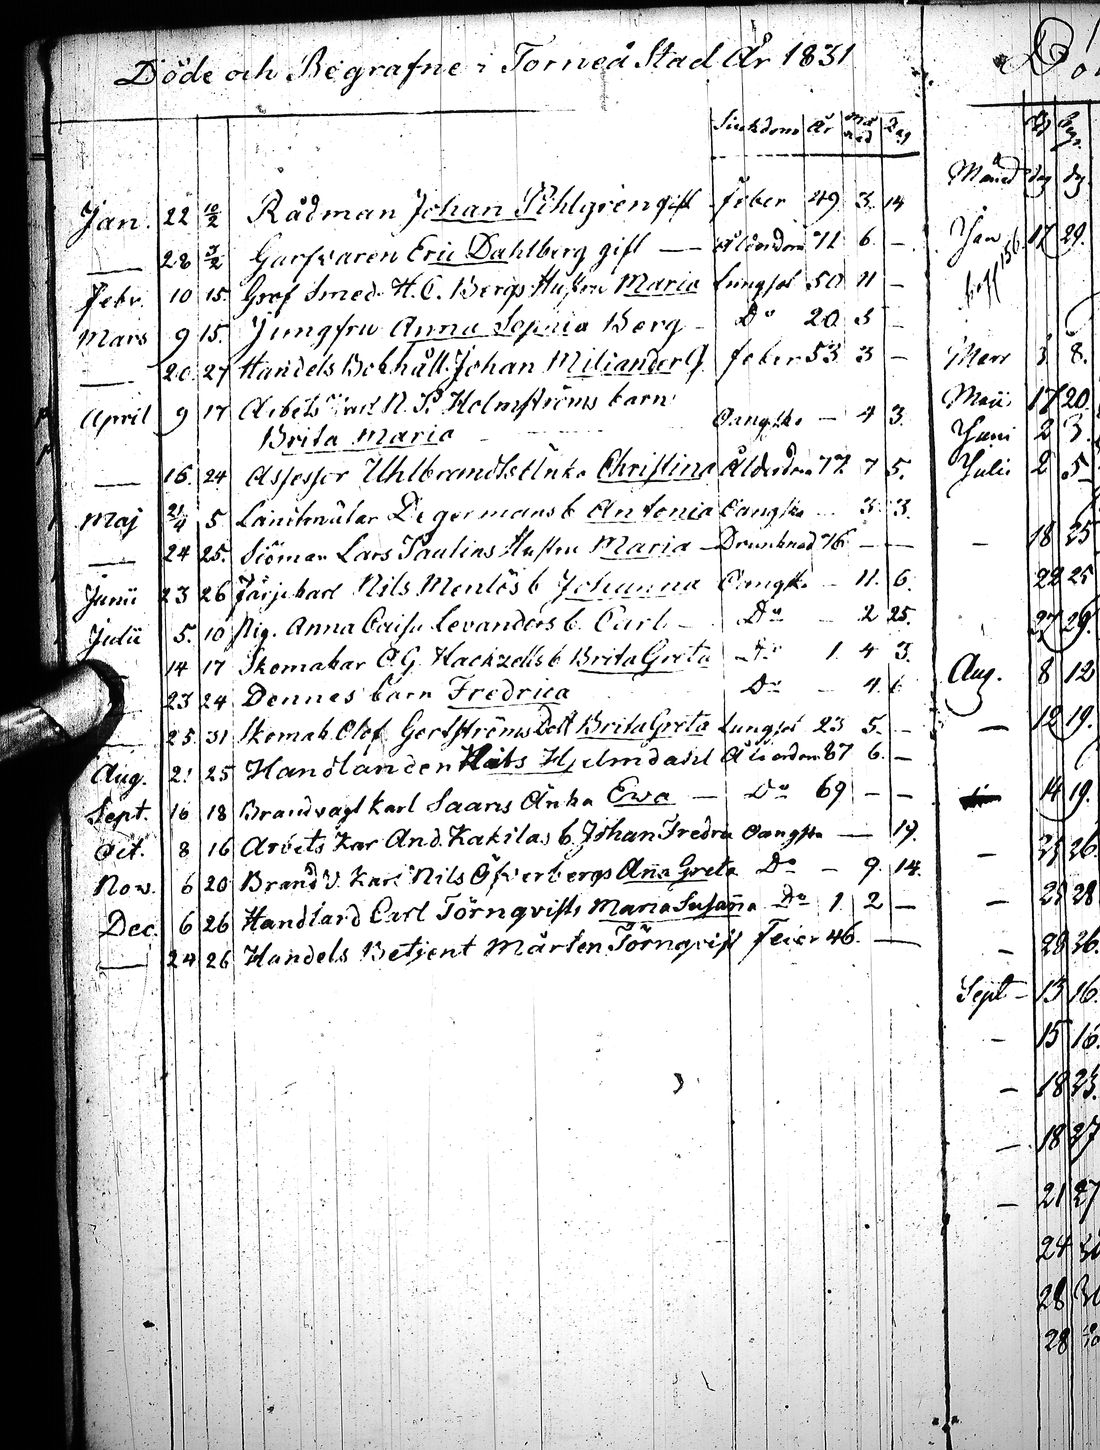 Döde och Begrafne i Torneå Stad År 1831
Siukdom År Må nad Dag
Jan. 22 10/2 Rådman Johan Pihlgren gift feber 49 3 14
— 28 3/2 Garfvaren Eric Dahlberg gift — ålderdom 71 6 —
Febr. 10 15. Grof Smed H. C. Bergs Hustru Maria Lungsot 50 11 —
Mars 9 15. Jungfru Anna Sophia Berg — Do 20 3 —
— 20 27 Handels Bokhåll. Johan Miliander G. feber 53 3 —
April 9 17 Arbets N. P. Holmströms barn
Brita Maria Oangifn — 4 3.
— 16. 24 Assessor Uhlbrandts Änka Christina Ålderdom 77 7 5.
Maj 21/4 5 Landtmätar Degermans b Antonia Oangifn — 3 3.
— 24 25. Siöman Lars Paulins Hustru Maria — Drunknad 76 — —
Junii 23 26 Färjekarl Nils Menlös b Johanna Oangifn — 11. 6.
Julii 5. 10 Pig. Anna Caisa Levanders b. Carl — Do — 2 25.
14 17 Skomakar C. G. Hackzells b Brita Greta Do 1 4 3.
23 24 Dennes barn Fredrica Do — 4
— 25 31 Skomak. Olof Gertströms Dott Brita Greta Lungsot 23 5. —
Aug. 21 25 Handlanden Mats Hjelmdahl Ålderdom 87 6. —
Sept. 16 18 Brandvagt Karl Saaris Änka Ewa — Do 69 — —
Oct. 8 16 Arbets Kar And. Kakilas b. Johan Fredric Oangifn — 17.
Nov. 6 20 Brand V. Karl Nils Öfverbergs Anna Greta Do — 9. 14.
Dec. 6 26 Handland Carl Törnqvists Maria Susanna Do 1 2 —
— 24 26 Handels Betjent Mårten Törnqvist Feber 46. —
Dö
Månad dag
Jan 17 29.
Mars 3 8.
Maii 17 20
Juni 2 3.
Julii 2 5
— 18 25
22 25
27 29.
Aug. 8 12
— 12 19.
14 19.
— 25 26.
— 25 28
— 29 36.
Sept — 13 16.
— 15 16.
— 18 23.
— 18 27
— 21 27
24 30
28 30
28